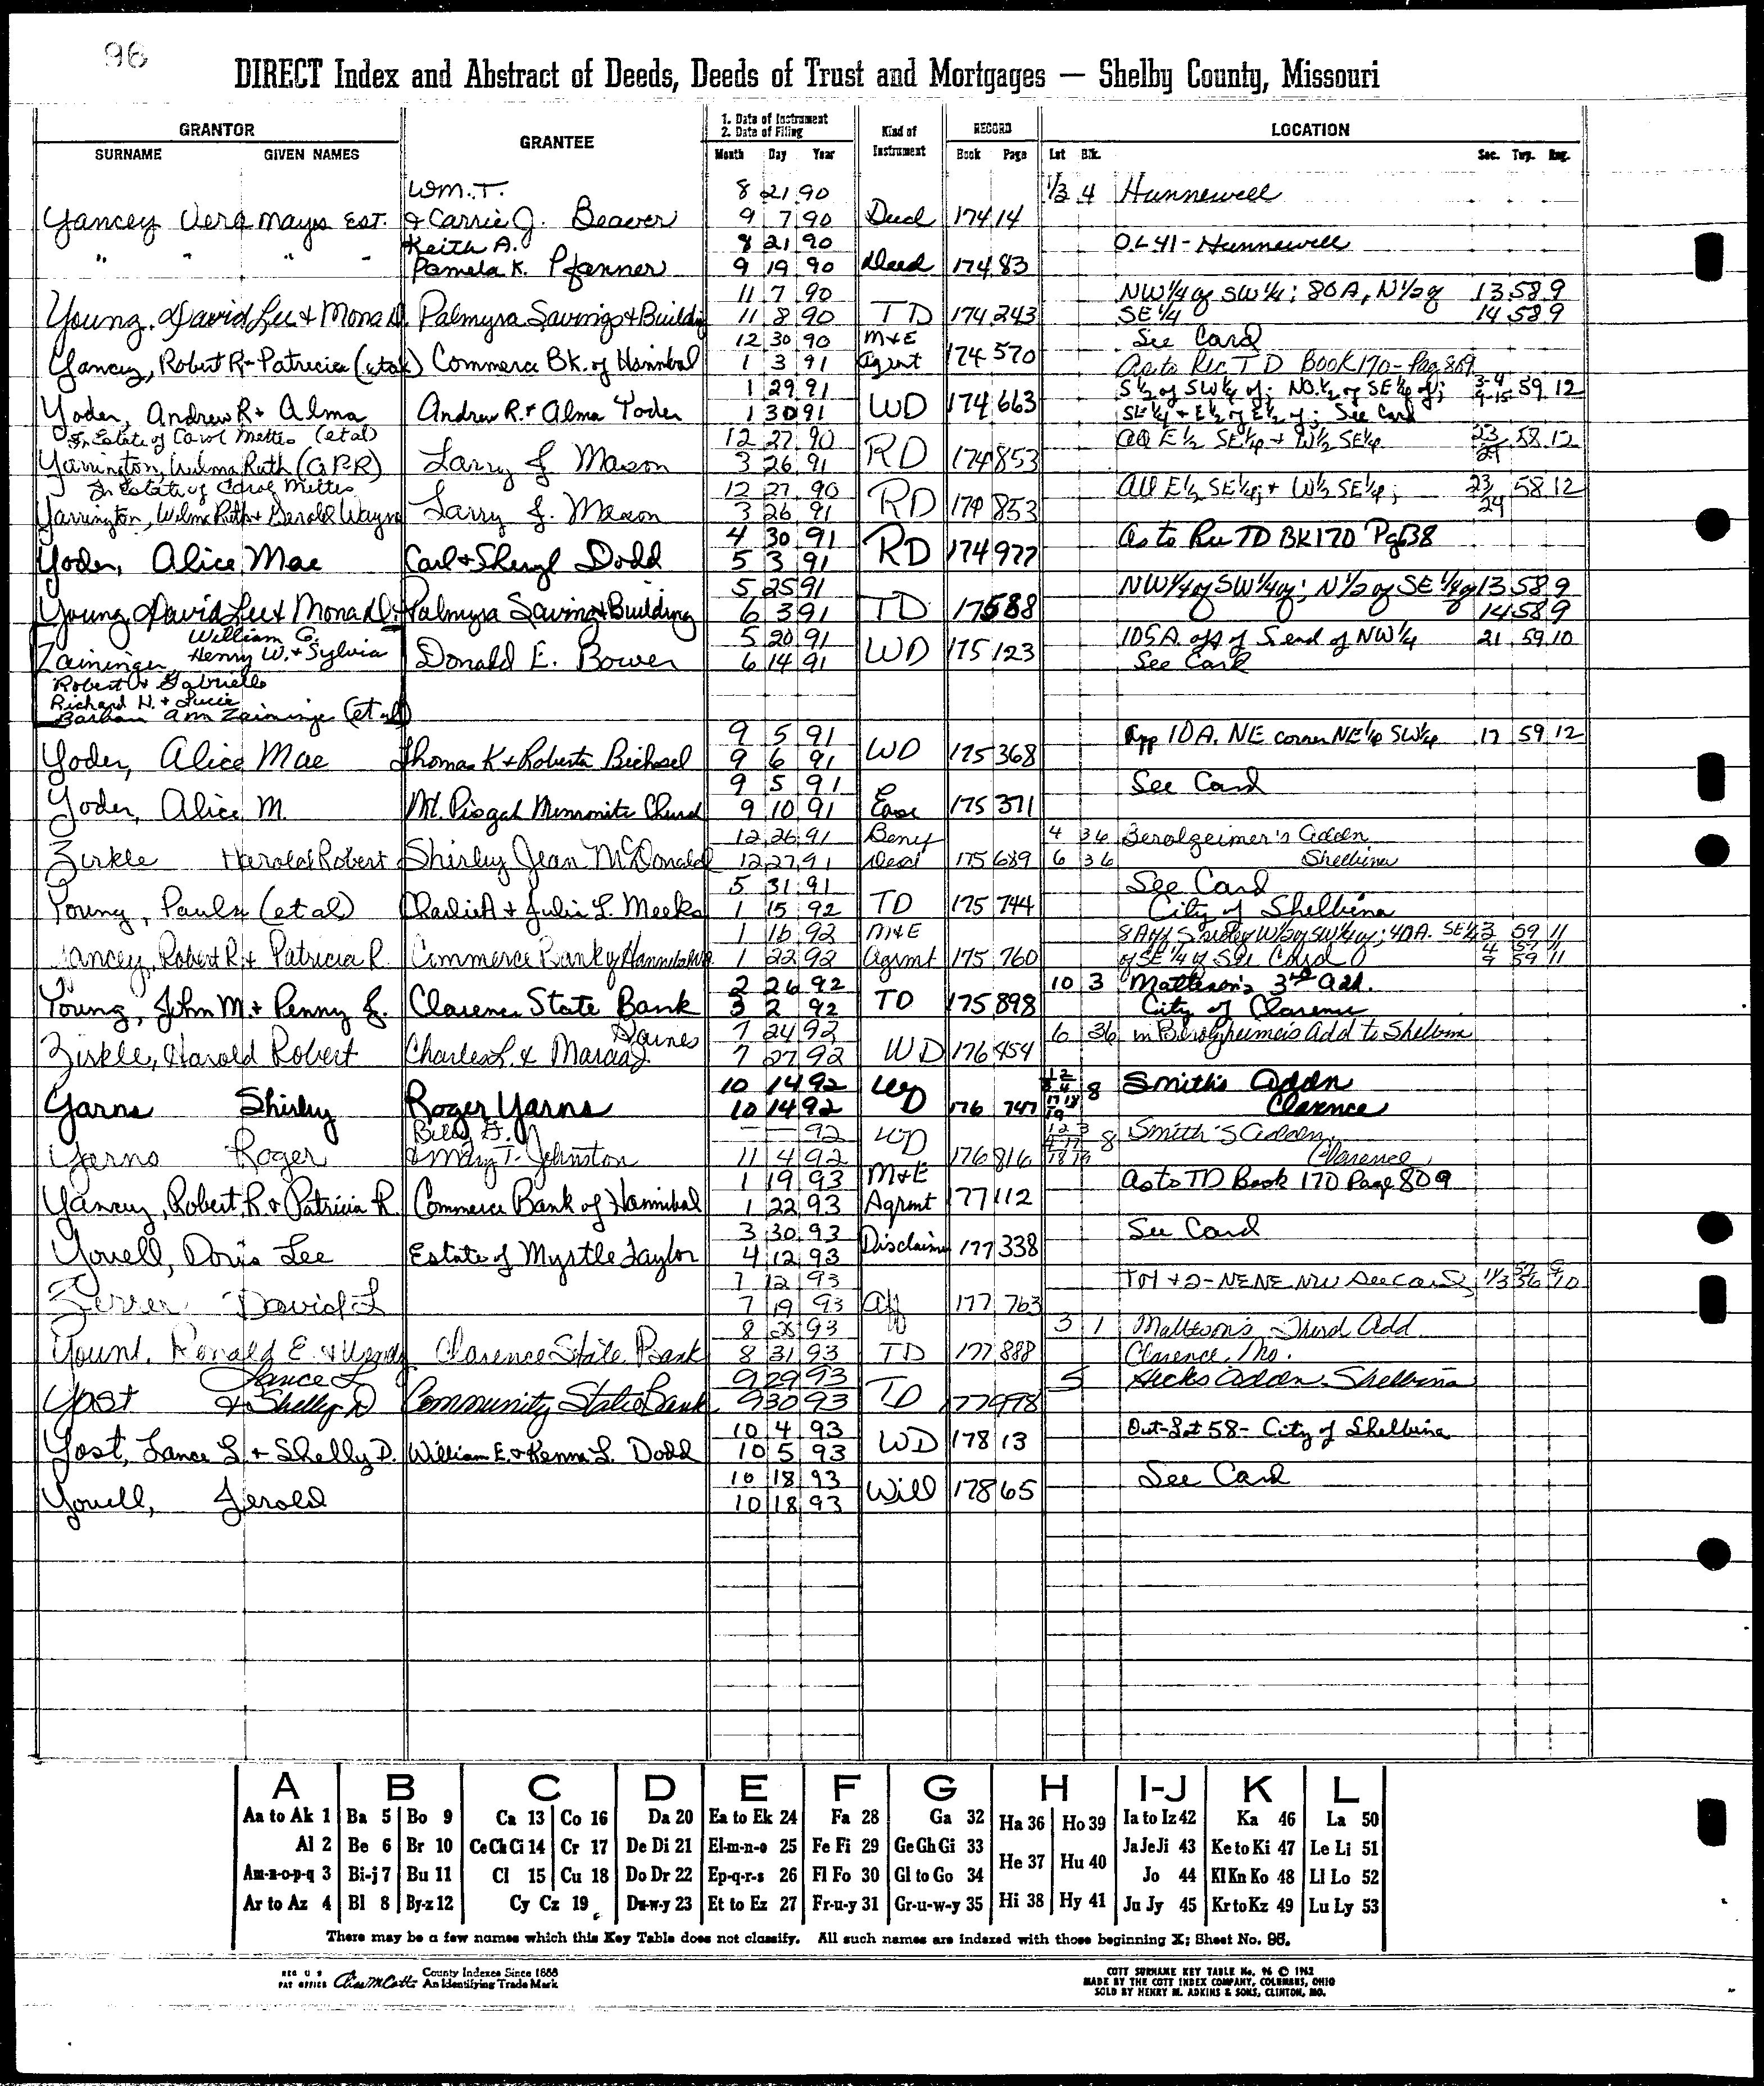 96
DIRECT Index and Abstract of Deeds, Deeds of Trust and Mortgages — Shelby County, Missouri
GRANTOR GRANTEE 1. Date of Instrument 2. Date of Filing Kind of Instrument RECORD LOCATION
SURNAME GIVEN NAMES Month Day Year Book Page Lot Blk. Sec. Twp. Rng.
Wm. T. 8 21 90 1/2 4 Hunnewell
Yancey Vera Mays Est. & Carrie J. Beaver 9 7 90 Deed 174 14
Keith A. 8 21 90 O.L 41 - Hunnewell
" " " " Pamela K. Pfanner 9 19 90 Deed 174 83
11 7 90 NW 1/4 of SW 1/4; 80A, N 1/2 of 13 58 9
Young, David Lee & Mona D. Palmyra Savings & Buildg 11 8 90 TD 174 243 SE 1/4 14 58 9
12 30 90 M&E See Card
Yancey, Robert R & Patricia (etal) Commerce Bk. of Hannibal 1 3 91 Agent 174 570 As to Rec TD Book 170 - Pag 809
1 29 91 S 1/2 of SW 1/4 of; NO. 1/2 of SE 1/4 of; 3-4 59 12
Yoder, Andrew R & Alma Andrew R. & Alma Yoder 1 30 91 WD 174 663 SE 1/4 & E 1/2 of E 1/2 of; See Card
In Estate of Carol Mettes (etal) 12 27 90 All E 1/2 SE 1/4 & W 1/2 SE 1/4 23/24 58 12
Yarrington, Wilma Ruth (G.P.R) Larry J Mason 3 26 91 RD 174 853
In Estate of Carol Mettes 12 27 90 All E 1/2 SE 1/4; & W 1/2 SE 1/4; 23/24 58 12
Yarrington, Wilma Ruth & Gerold Wayne Larry J. Mason 3 26 91 RD 174 853
4 30 91 As to Rec TD BK 170 Pg 638
Yoder, Alice Mae Carl & Sheryl Dodd 5 3 91 RD 174 977
5 25 91 NW 1/4 of SW 1/4 of; N 1/2 of SE 1/4 of 13 58 9
Young, David Lee & Mona D. Palmyra Saving & Building 6 3 91 TD 175 88 14 58 9
William G. 5 20 91 105 A. off of S end of NW 1/4 21 59 10
Zaininger, Henry W. & Sylvia Donald E. Bower 6 14 91 WD 175 123 See Card
Robert & Gabrielle
Richard H. & Lucie
Barbara Ann Zaininge (et al)
9 5 91 App 10 A. NE corner NE 1/4 SW 1/4 17 59 12
Yoder, Alice Mae Thomas K & Roberta Bichsel 9 6 91 WD 175 368
9 5 91 See Card
Yoder, Alice M. Mt. Pisgah Mennonite Church 9 10 91 Ease 175 371
12 26 91 Beny 4 36 Berolzeimer's Addn
Zirkle Harold Robert Shirley Jean McDonald 12 27 91 Deed 175 689 6 36 Shelbina
5 31 91 See Card
Young, Paul (et al) Charlie A & Julia L. Meeks 1 15 92 TD 175 744 City of Shelbina
1 16 92 M&E 8 A off S side of W 1/2 of SW 1/4 of; 40A. SE 1/4 3 59 11
Yancey, Robert R. & Patricia R. Commerce Bank of Hannibal 1 22 92 Agrmt 175 760 of SE 1/4 of See Card 4 59 11
2 26 92 10 3 Matteson's 3rd Add.
Young, John M. & Penny J. Clarence State Bank 3 2 92 TD 175 898 City of Clarence
Haines 7 24 92 6 36 in Berolzheimer's Add to Shelbina
Zirkle, Harold Robert Charles L. & Marcia J. 7 27 92 WD 176 454
10 14 92 WD 8 Smith's Addn
Yarns Shirley Roger Yarns 10 14 92 176 747 Clarence
Billy G. — — 92 WD 8 Smith's Addn.
Yarns Roger & Mary T. Johnston 11 4 92 176 816 Clarence
1 19 93 M&E As to TD Book 170 Page 809
Yancey, Robert R. & Patricia R. Commerce Bank of Hannibal 1 22 93 Agrmt 177 112
3 30 93 See Card
Yowell, Doris Lee Estate of Myrtle Taylor 4 12 93 Disclaim 177 338
7 12 93 NE NE NW See Card
Zerrer David L 7 19 93 Aff 177 763
8 28 93 3 1 Matteson's Third Add
Yount, Ronald E. & Clarence State Bank 8 31 93 TD 177 888 Clarence, Mo.
Lance L 9 29 93 5 Hicks Addn. Shelbina
Yost & Shelly D Community State Bank 9 30 93 TD 177 978
10 4 93 Out-Lot 58 - City of Shelbina
Yost, Lance L. & Shelly D. William E. & Kenna L. Dodd 10 5 93 WD 178 13
10 18 93 See Card
Yowell, Jerold 10 18 93 Will 178 65
A B C D E F G H I-J K L
Aa to Ak 1 Ba 5 Bo 9 Ca 13 Co 16 Da 20 Ea to Ek 24 Fa 28 Ga 32 Ha 36 Ho 39 Ia to Iz 42 Ka 46 La 50
Al 2 Be 6 Br 10 Ce Ch Ci 14 Cr 17 De Di 21 El-m-n-o 25 Fe Fi 29 Ge Gh Gi 33 He 37 Hu 40 Ja Je Ji 43 Ke to Ki 47 Le Li 51
Am-n-o-p-q 3 Bi-j 7 Bu 11 Cl 15 Cu 18 Do Dr 22 Ep-q-r-s 26 Fl Fo 30 Gl to Go 34 Jo 44 Kl Kn Ko 48 Ll Lo 52
Ar to Az 4 Bl 8 By-z 12 Cy Cz 19 Du-w-y 23 Et to Ez 27 Fr-u-y 31 Gr-u-w-y 35 Hi 38 Hy 41 Ju Jy 45 Kr to Kz 49 Lu Ly 53
There may be a few names which this Key Table does not classify. All such names are indexed with those beginning X; Sheet No. 95.
REG U S PAT OFFICE County Indexes Since 1888 An Identifying Trade Mark
COTT SURNAME KEY TABLE No. 96 © 1962
MADE BY THE COTT INDEX COMPANY, COLUMBUS, OHIO
SOLD BY HENRY M. ADKINS & SONS, CLINTON, MO.